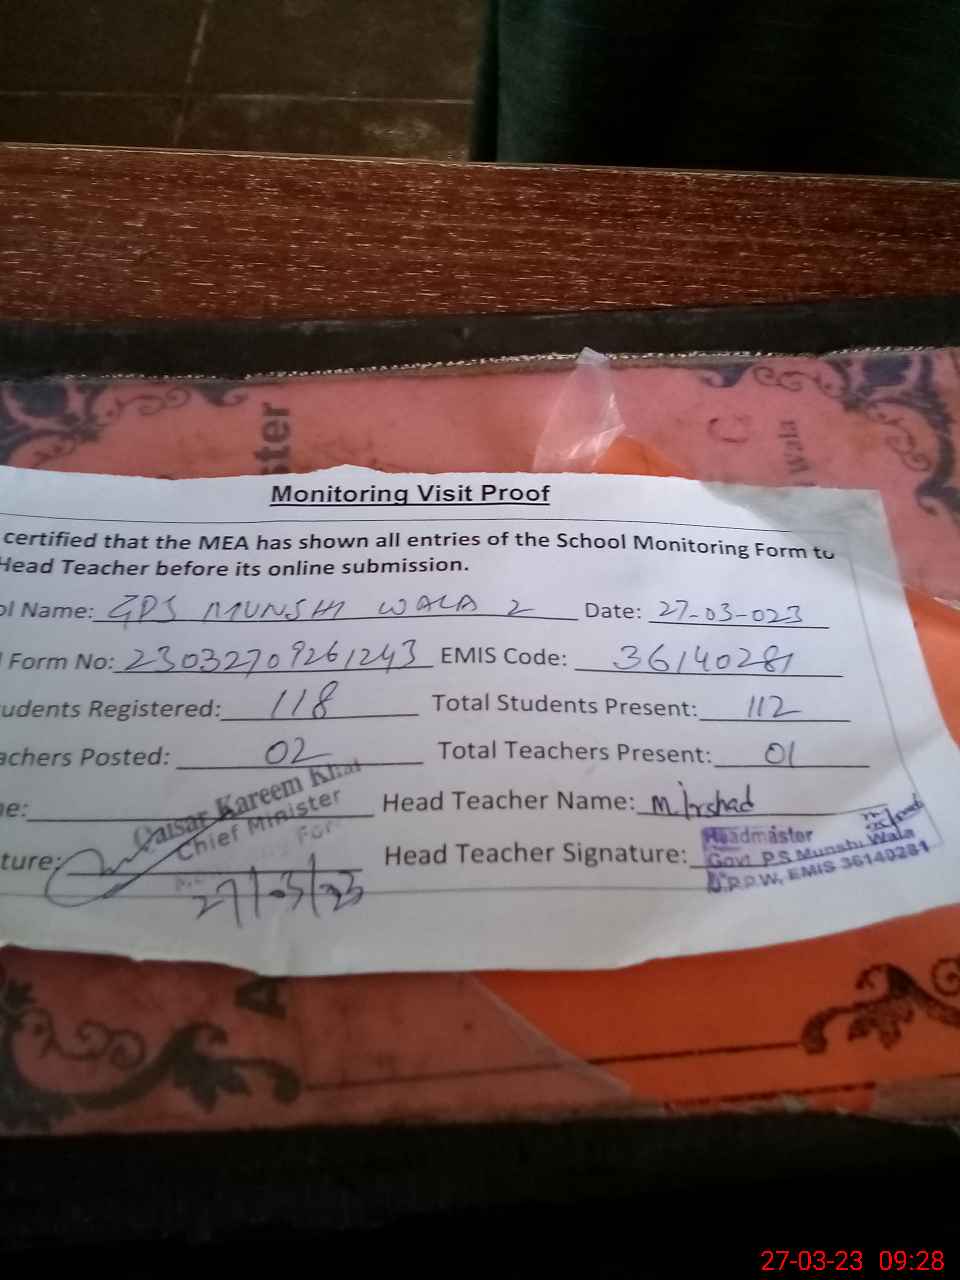 ster
Wala
Monitoring Visit Proof
certified that the MEA has shown all entries of the School Monitoring Form to
Head Teacher before its online submission.
ol Name: GPS MUNSHI WALA 2 Date: 27-03-023
Form No: 23032709261243 EMIS Code: 36140281
udents Registered: 118 Total Students Present: 112
achers Posted: 02 Total Teachers Present: 01
e: Head Teacher Name: M. Irshad
Qaisar Kareem Khan
Chief Minister
For
ture: Head Teacher Signature:
27/03/23
Headmaster
Govt P.S Munshi Wala
D.P.P.W, EMIS 36140281
27-03-23 09:28